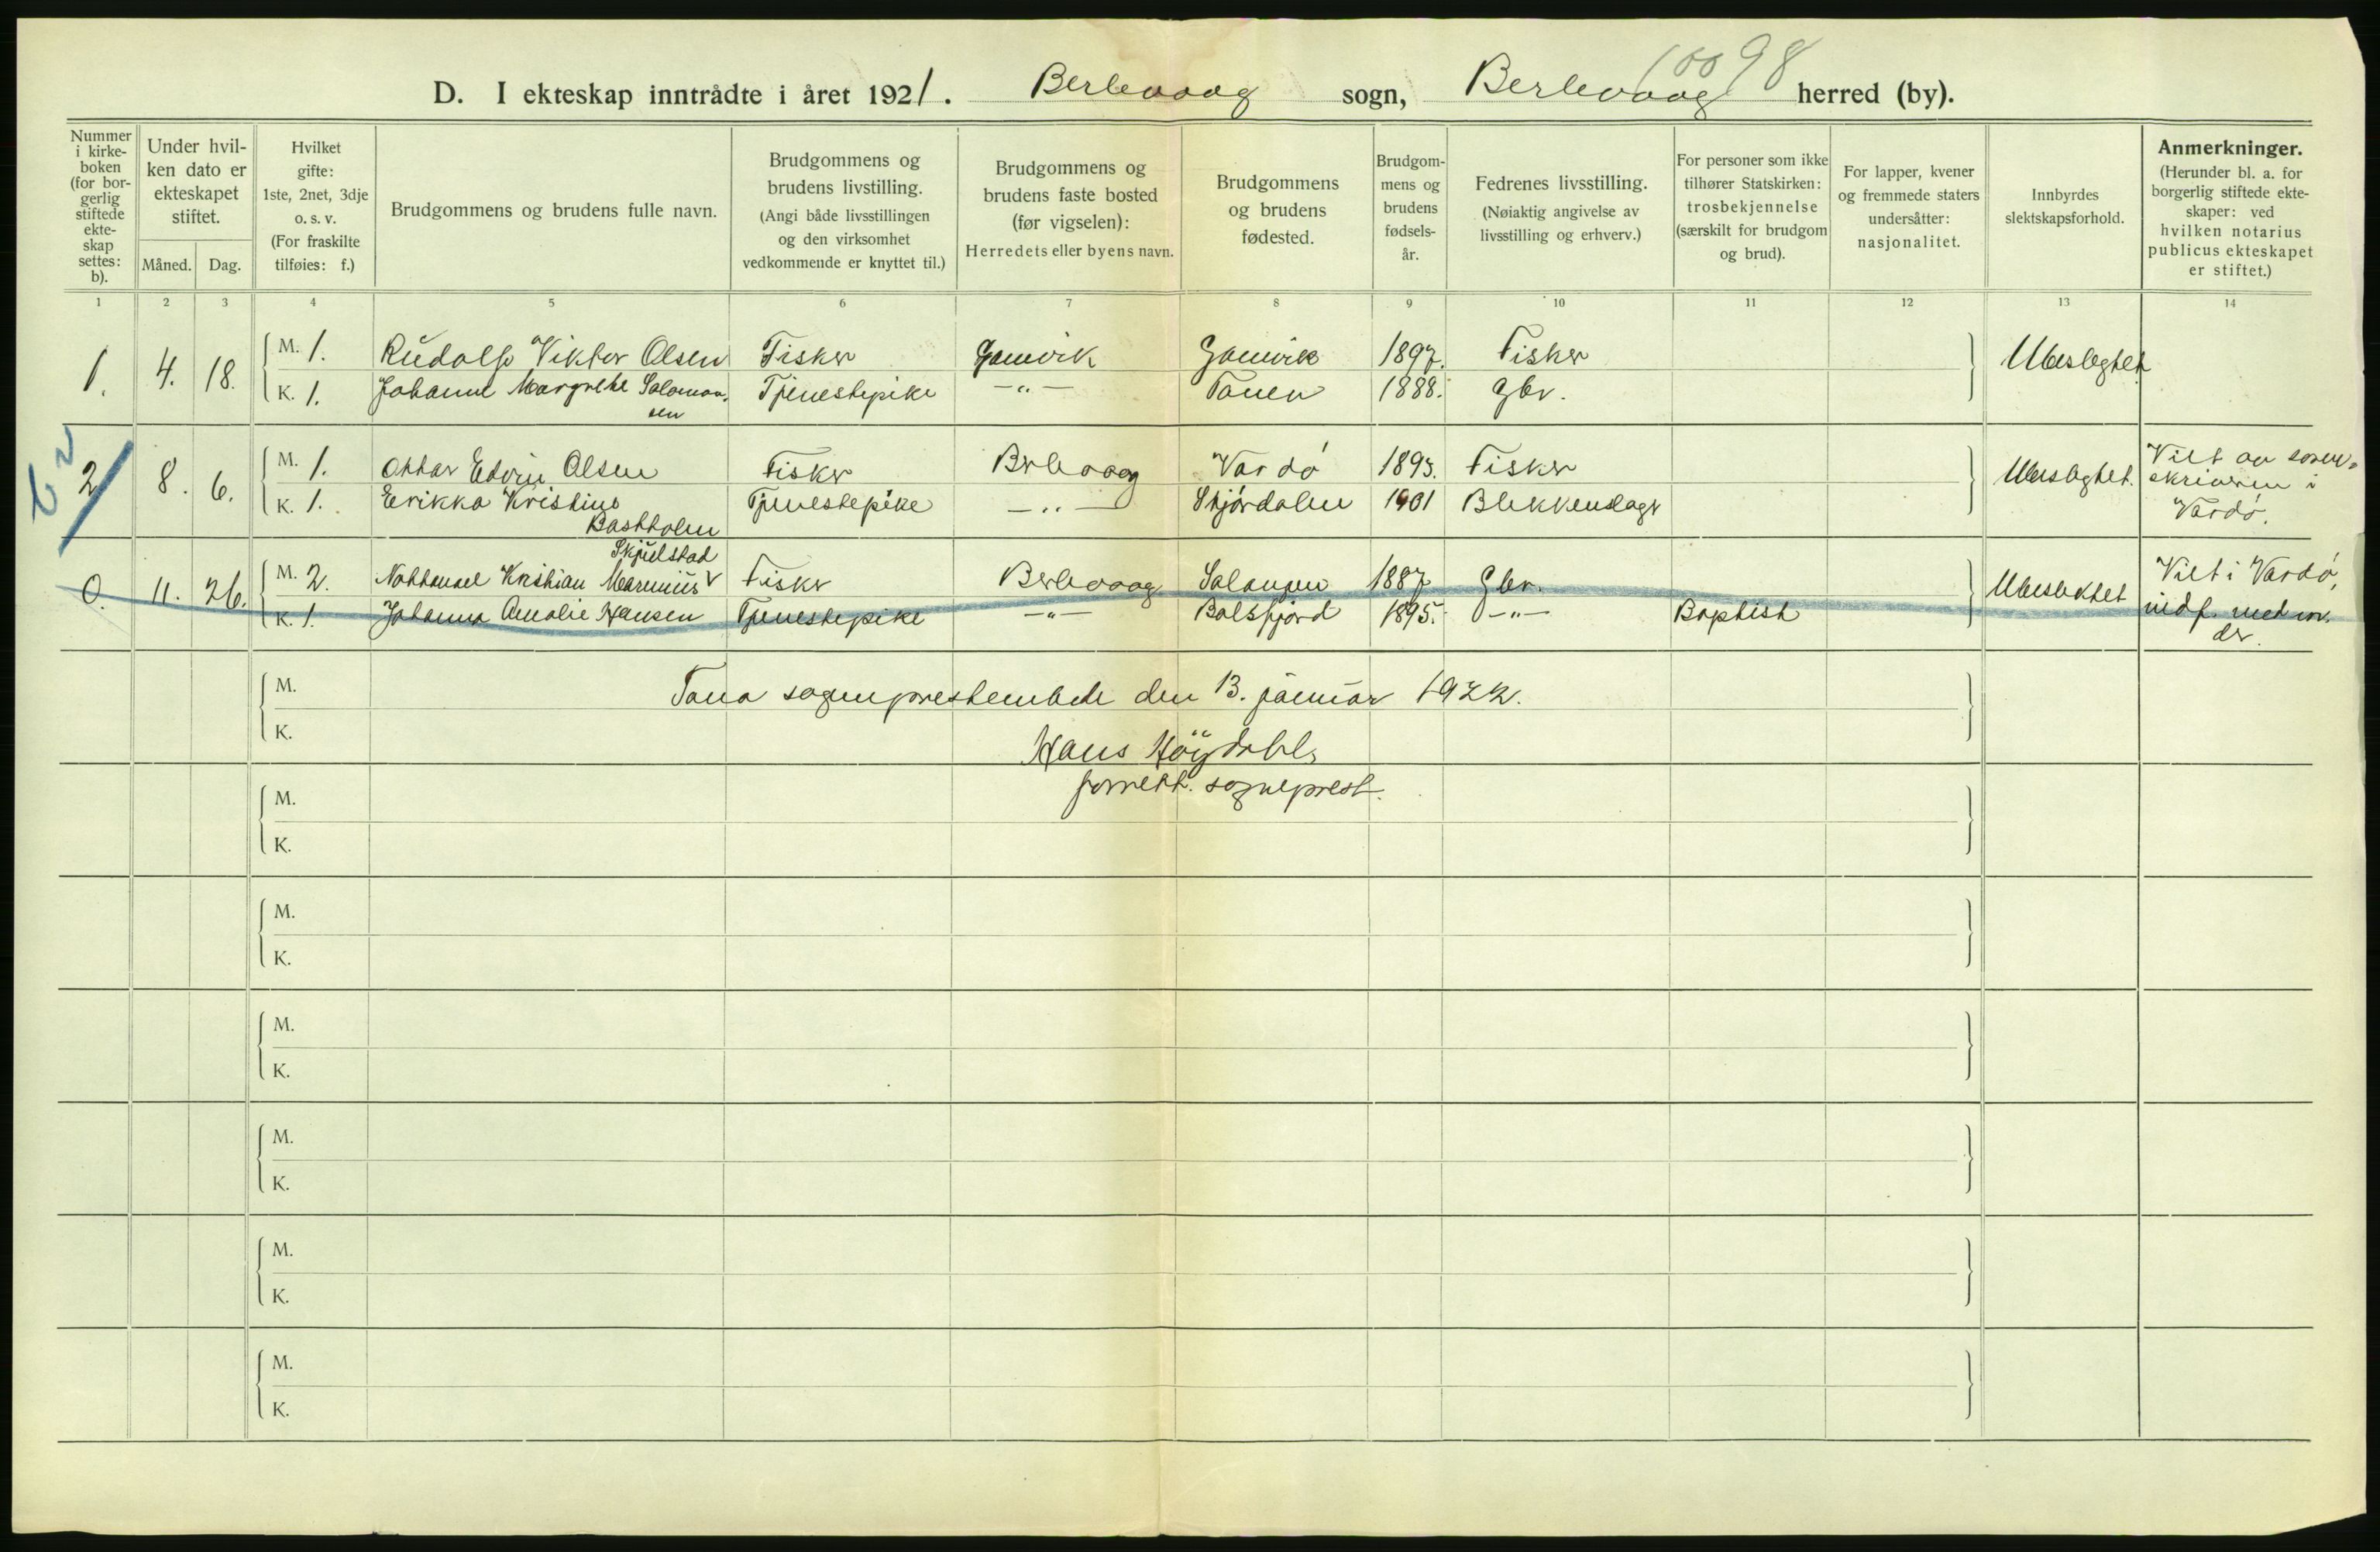 10098
D. I ekteskap inntrådte i året 1921. Berlevaag sogn, Berlevaag herred (by).
Nummer i kirke-boken (for bor-gerlig stiftede ekte-skap settes: b).
Under hvil-ken dato er ekteskapet stiftet.
Måned. Dag.
Hvilket gifte: 1ste, 2net, 3dje o. s. v. (For fraskilte tilføies: f.)
Brudgommens og brudens fulle navn.
Brudgommens og brudens livstilling. (Angi både livsstillingen og den virksomhet vedkommende er knyttet til.)
Brudgommens og brudens faste bosted (før vigselen): Herredets eller byens navn.
Brudgommens og brudens fødested.
Brudgom-mens og brudens fødsels-år.
Fedrenes livsstilling. (Nøiaktig angivelse av livsstilling og erhverv.)
For personer som ikke tilhører Statskirken: trosbekjennelse (særskilt for brudgom og brud).
For lapper, kvener og fremmede staters undersåtter: nasjonalitet.
Innbyrdes slektskapsforhold.
Anmerkninger. (Herunder bl. a. for borgerlig stiftede ekte-skaper: ved hvilken notarius publicus ekteskapet er stiftet.)
1 2 3 4 5 6 7 8 9 10 11 12 13 14
1. 4. 18. M. 1. Rudolf Viktor Olsen Fisker Gamvik Gamvik 1897. Fisker Ubeslegtet
K. 1. Johanne Margrethe Salomon- Tjenestepike —"— Tanen 1888. Gbr.
sen
b 2
2 8. 6. M. 1. Ottar Edvin Olsen Fisker Berlevaag Vardö 1893. Fisker Ubeslegtet. Viet av soren-
skriveren i
Vardö.
K. 1. Erikka Kristine Tjenestepike —"— Stjördalen 1901 Blikkenslager
Bastholm
Skjelstad
0. 11. 26. M. 2. Nathanael Kristian Marinius Fisker Berlevaag Salangen 1887 Gbr. Ubeslektet Viet i Vardö,
K. 1. Johanna Amalie Hansen Tjenestepike —"— Balsfjord 1895. —"— Baptist
M. Tana sogneprestembede den 13. januar 1922.
K. Hans Höydahl,
M. forrett. sogneprest.
K.
M.
K.
M.
K.
M.
K.
M.
K.
M.
K.